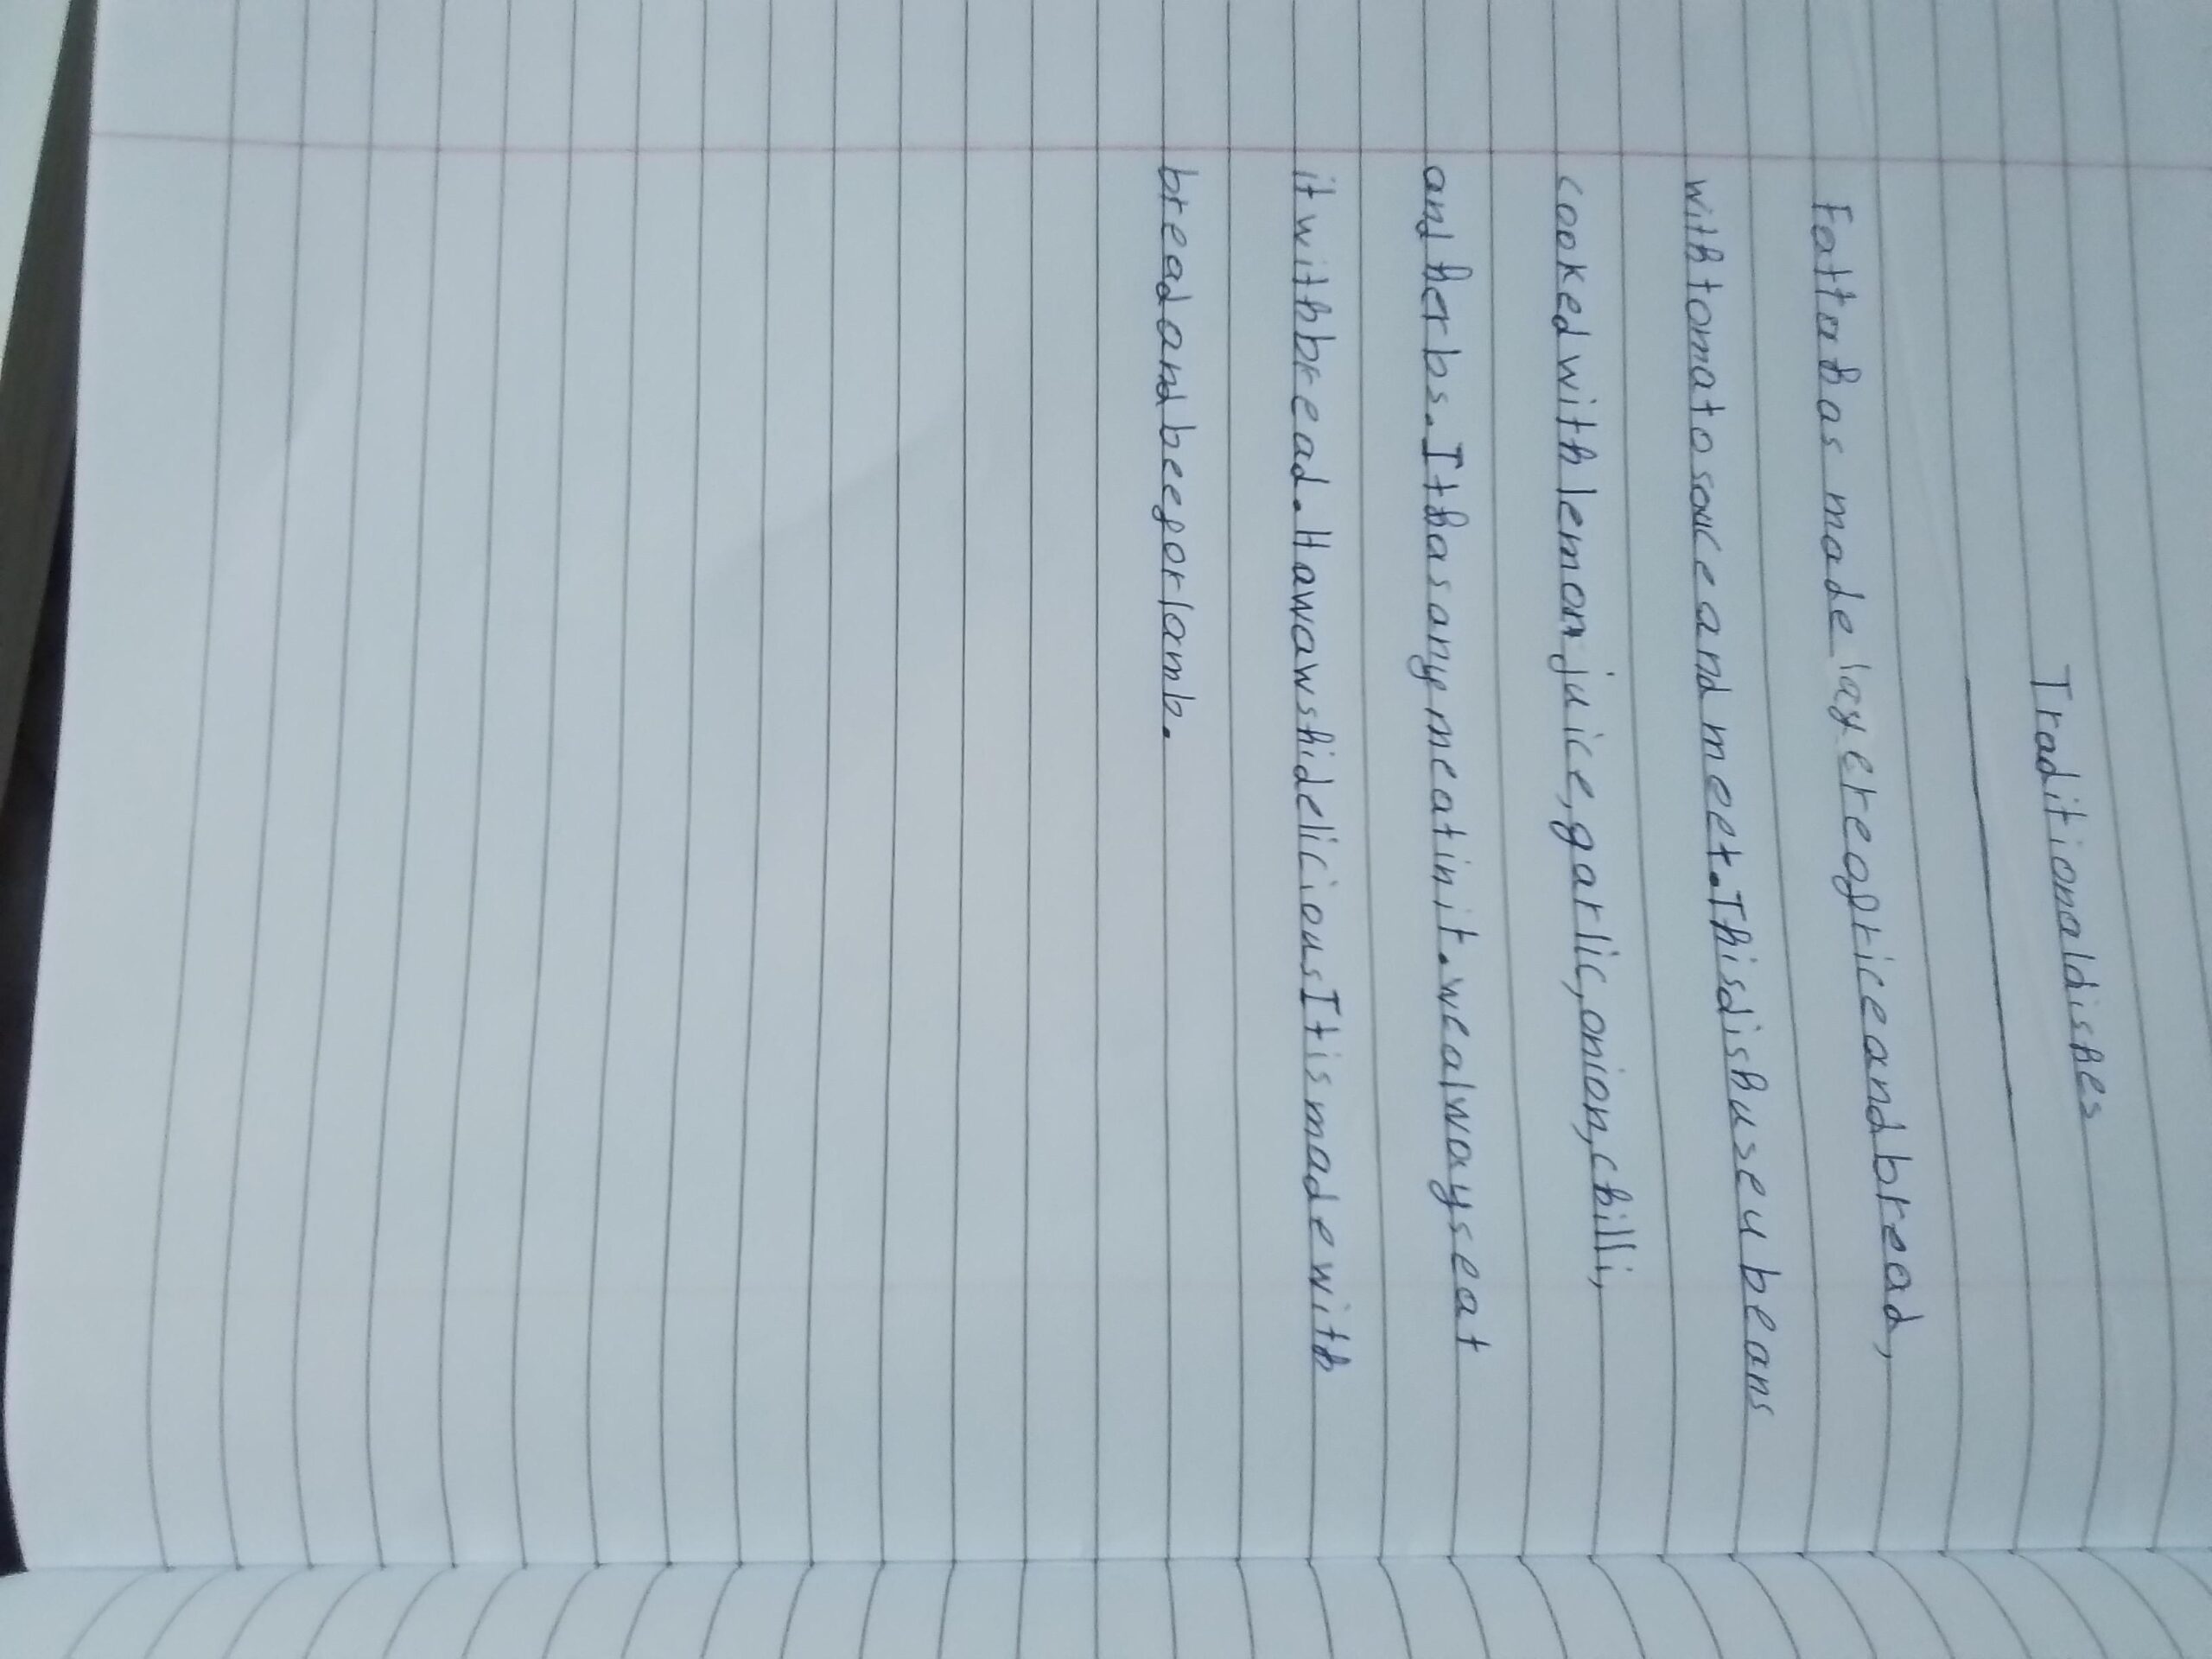 Traditional dishes
Fatta has made layer eof rice and bread,
with tomato sauce and meet. This dish use u beans
cooked with lemon juice, garlic, onion, chilli,
and herbs. It has any meat in it. we always eat
it with bread. Hawawshi delicious It is made with
bread and beef or lamb.